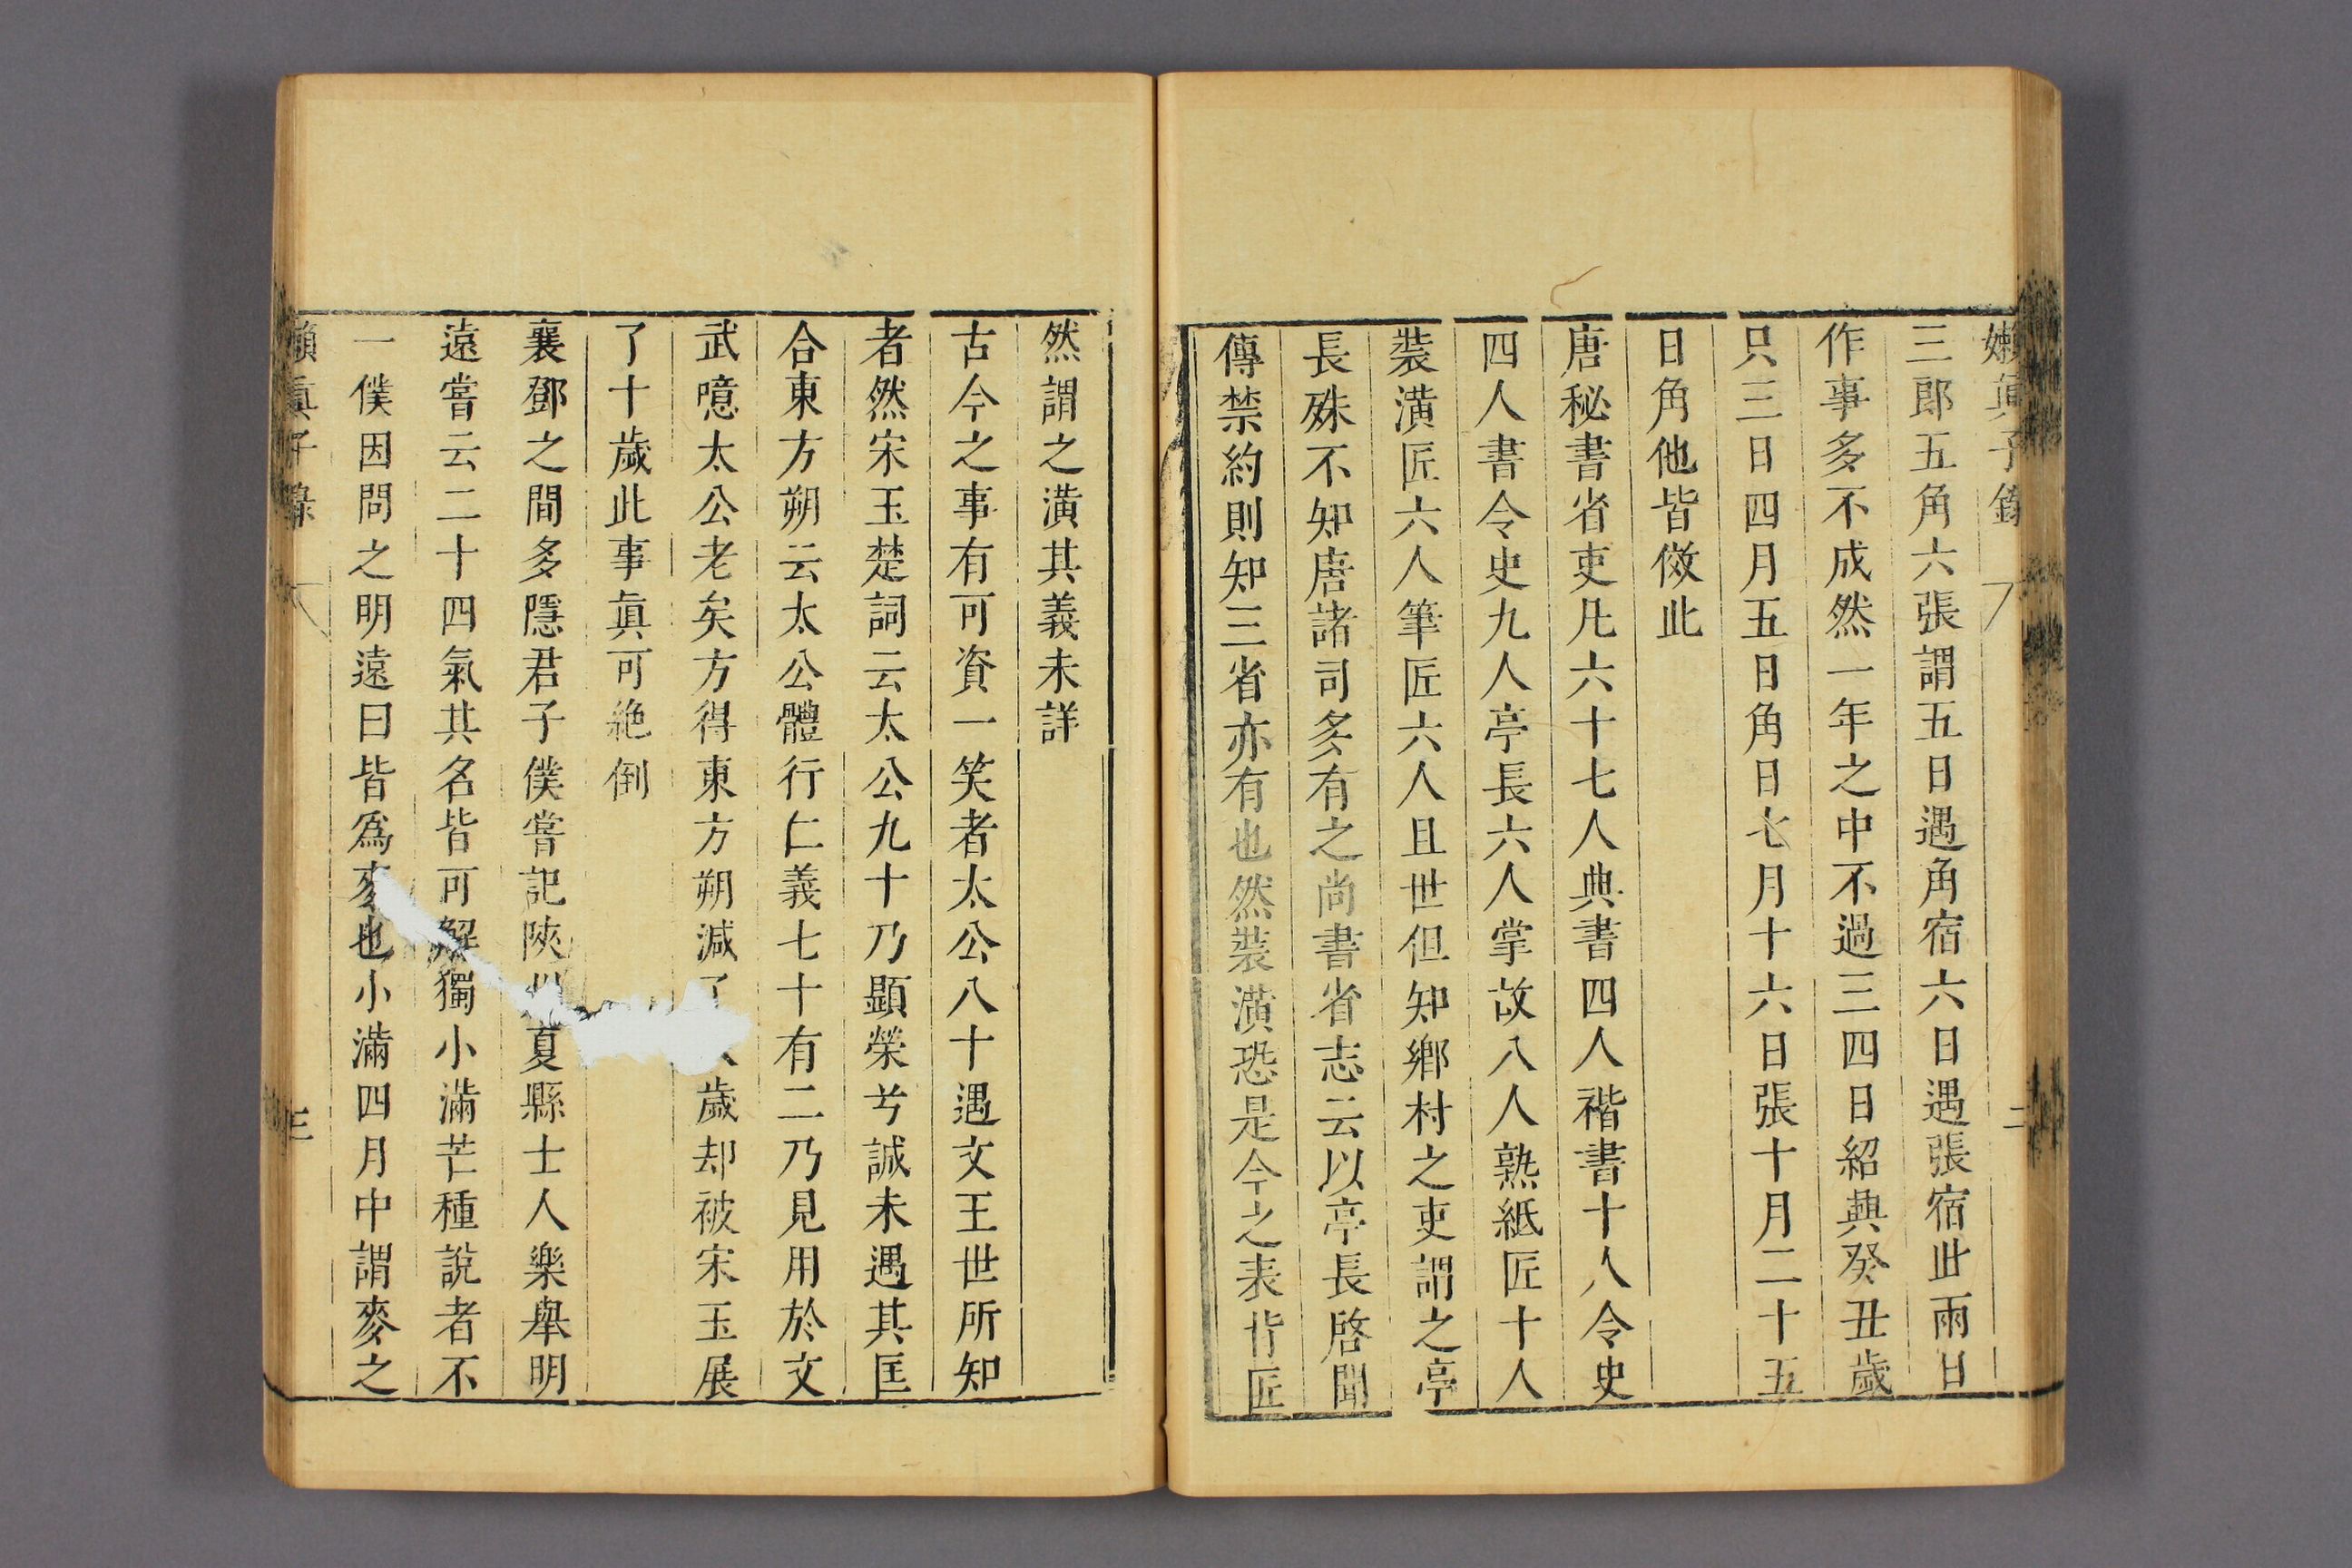 嬾真子錄
二
三郎五角六張謂五日遇角宿六日遇張宿此兩日
作事多不成然一年之中不過三四日紹興癸丑歲
只三日四月五日角日七月十六日張十月二十五
日角他皆倣此
唐秘書省吏凡六十七人典書四人楷書十人令史
四人書令史九人亭長六人掌故八人熟紙匠十人
裝潢匠六人筆匠六人且世但知鄉村之吏謂之亭
長殊不知唐諸司多有之尚書省志云以亭長啓閉
傳禁約則知三省亦有也然裝潢恐是今之表背匠
然謂之潢其義未詳
古今之事有可資一笑者太公八十遇文王世所知
者然宋玉楚詞云太公九十乃顯榮兮誠未遇其匡
合東方朔云太公體行仁義七十有二乃見用於文
武噫太公老矣方得東方朔減了歲却被宋玉展
了十歲此事真可絶倒
襄鄧之間多隱君子僕嘗記陝夏縣士人樂舉明
遠嘗云二十四氣其名皆可解獨小滿芒種說者不
一僕因問之明遠曰皆爲麥也小滿四月中謂麥之
嬾真子錄
三